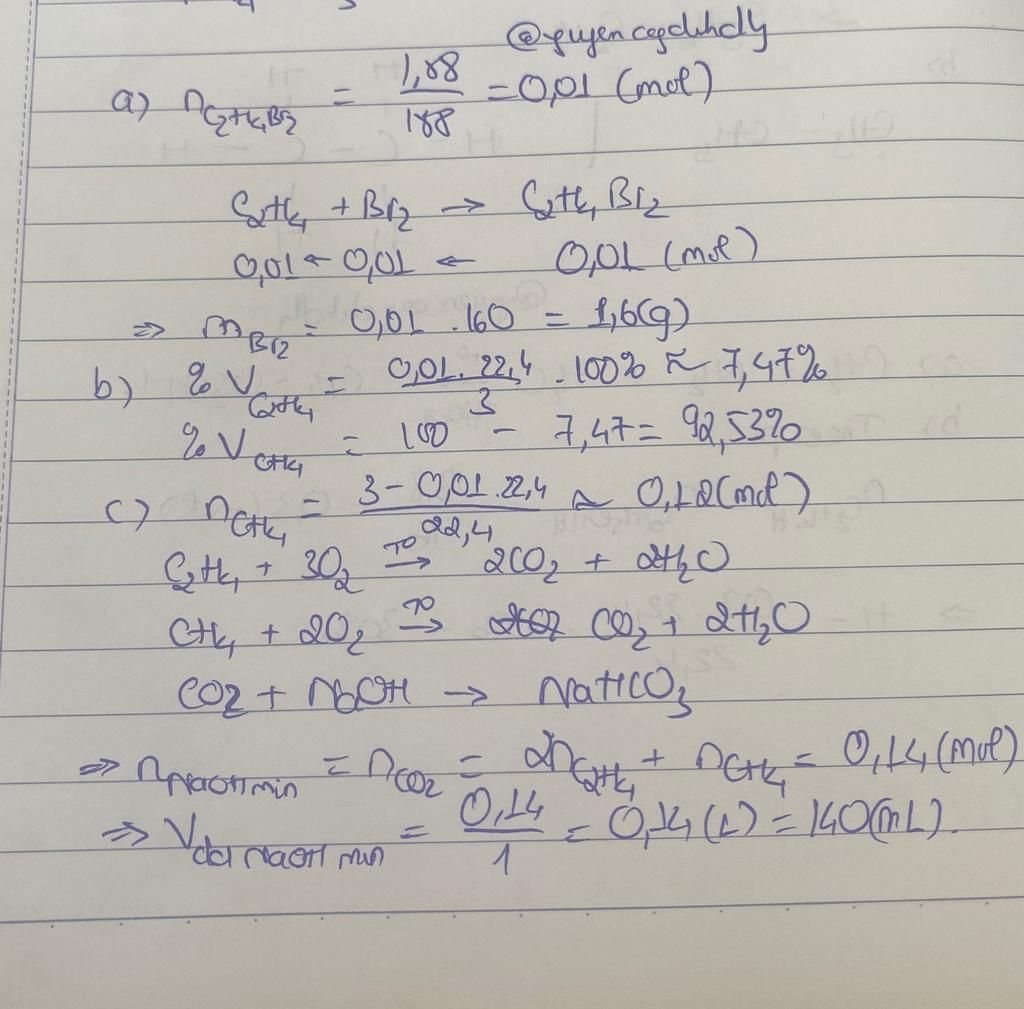 @quyencogdihdly
a) nC2H4Br2 = 1,88/188 = 0,01 (mol)
C2H4 + Br2 → C2H4Br2
0,01 ← 0,01 ← 0,01 (mol)
⇒ mBr2 = 0,01 . 160 = 1,6(g)
b) % VC2H4 = 0,01. 22,4/3 . 100% ≈ 7,47%
% VCH4 = 100 - 7,47 = 92,53%
c) nCH4 = 3 - 0,01. 22,4/22,4 ≈ 0,12(mol)
C2H4 + 3O2 →TO 2CO2 + 2H2O
CH4 + 2O2 →TO CO2 + 2H2O
CO2 + NaOH → NaHCO3
⇒ nNaOH min = nCO2 = 2nC2H4 + nCH4 = 0,14 (mol)
⇒ Vdd NaOH min = 0,14/1 = 0,14 (L) = 140(mL).